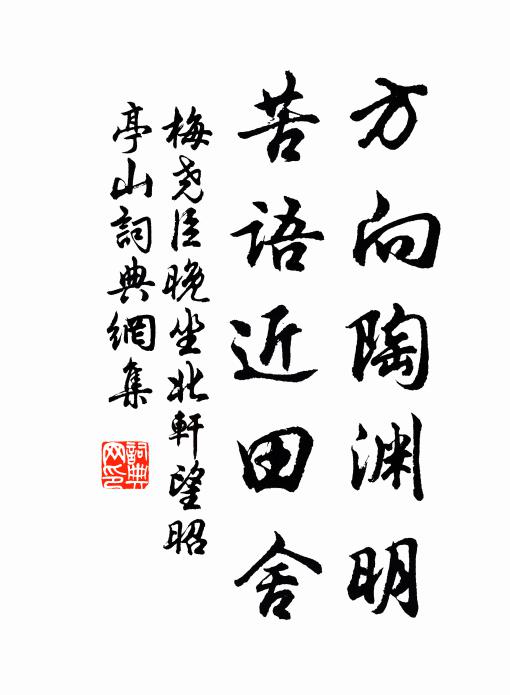 方向陶渊明
苦语近田舍
梅尧臣晚坐北軒望昭
亭山詞典網集
詞典
网印